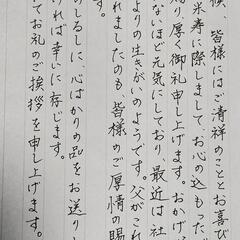 候、皆様にはご清祥のこととお喜び
米寿に際しまして、お心の込もった
り厚く御礼申し上げます。おかげ
ないほど元気にしており、最近は社
よりの生きがいのようです。父がこれ
れましたのも、皆様のご厚情の賜
す。
のしるしに、心ばかりの品をお送り
ければ幸いに存じます。
してお礼のご挨拶を申し上げます。